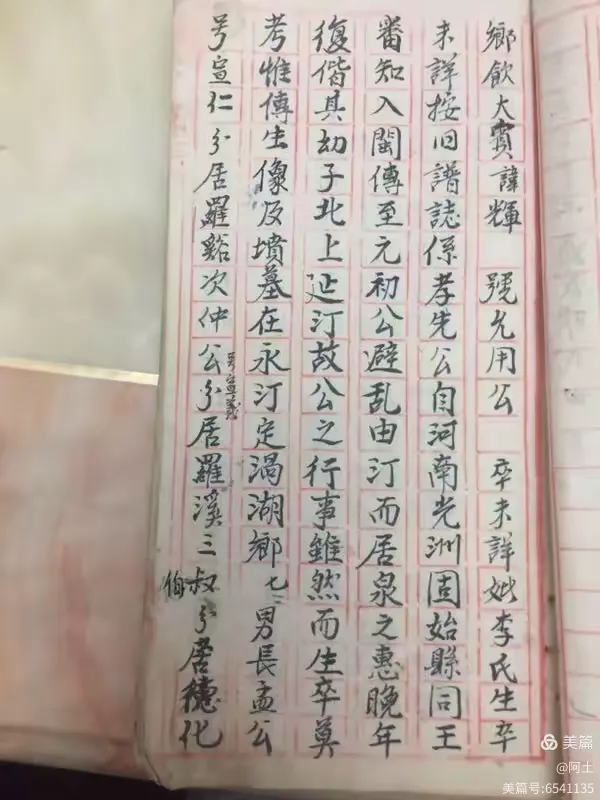 鄉飲大賓諱輝 號允用公 卒未詳妣李氏生卒
未詳按旧譜誌係孝先公自河南光洲固始縣同王
審知入閩傳至元初公避乱由汀而居泉之惠晚年
復偕其幼子北上延汀故公之行事雖然而生卒莫
考惟傳生像及墳墓在永汀定渦湖鄉 七 男長孟公
号宣仁分居羅谿次仲公号宣義分居羅溪三叔伯分居德化
美篇
@阿土
美篇号:6541135